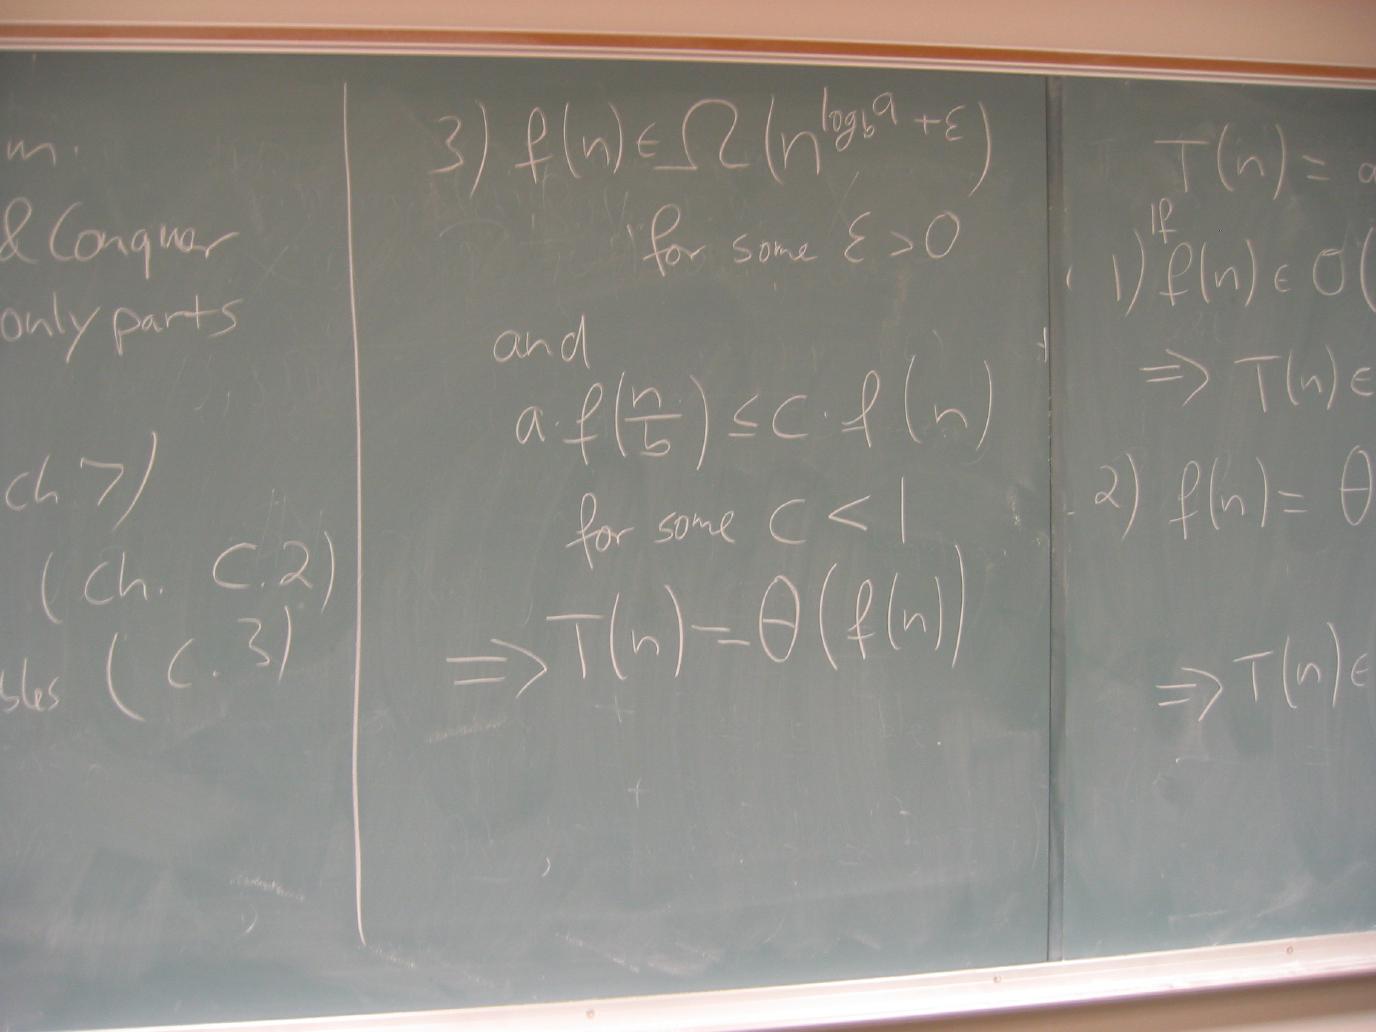 m.
& Conquer
only parts
ch 7)
(Ch. C.2)
(C.3)
3) f(n) ∈ Ω(n^{log_b a + ε})
for some ε > 0
and
a·f(n/b) ≤ c·f(n)
for some c < 1
⇒ T(n) = Θ(f(n))
T(n) = a
If
1) f(n) ∈ O(
⇒ T(n) ∈
2) f(n) = Θ
⇒ T(n) ∈